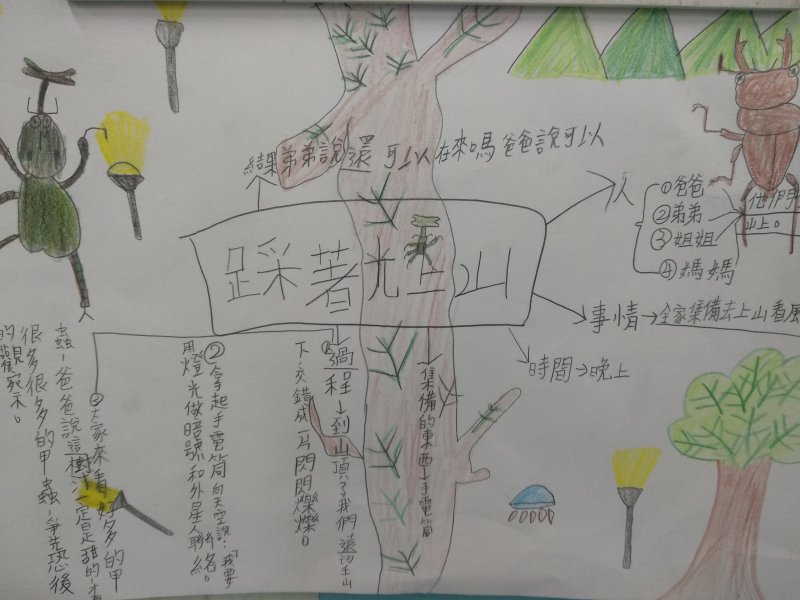 結果弟弟說還可以在來嗎爸爸說可以
踩著光上山
人
①爸爸
②弟弟
③姐姐
④媽媽
他們
山上。
事情→全家集備去上山看風
時間→晚上
集備的東西→手電筒
①過程→到山頂了我們遠望山
下,交錯成一片閃閃爍爍。
②拿起手電筒向天空說:「我要
用燈光做暗號和外星人聯絡。
大家來看好多的甲
蟲,爸爸說這樹汁一定是甜的,才
很多很多的甲蟲,爭先恐後
的觀察。